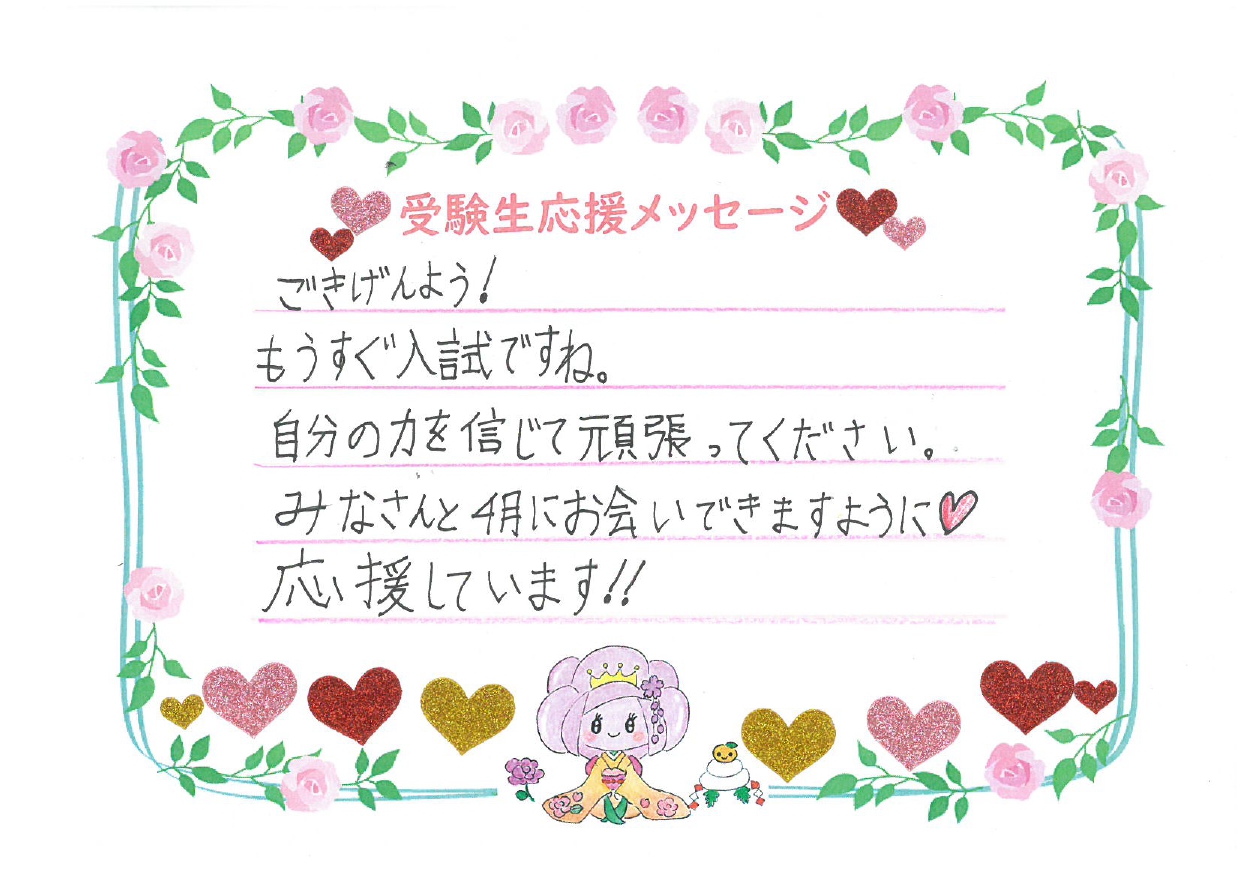 受験生応援メッセージ
ごきげんよう!
もうすぐ入試ですね。
自分の力を信じて頑張ってください。
みなさんと4月にお会いできますように♥
応援しています!!